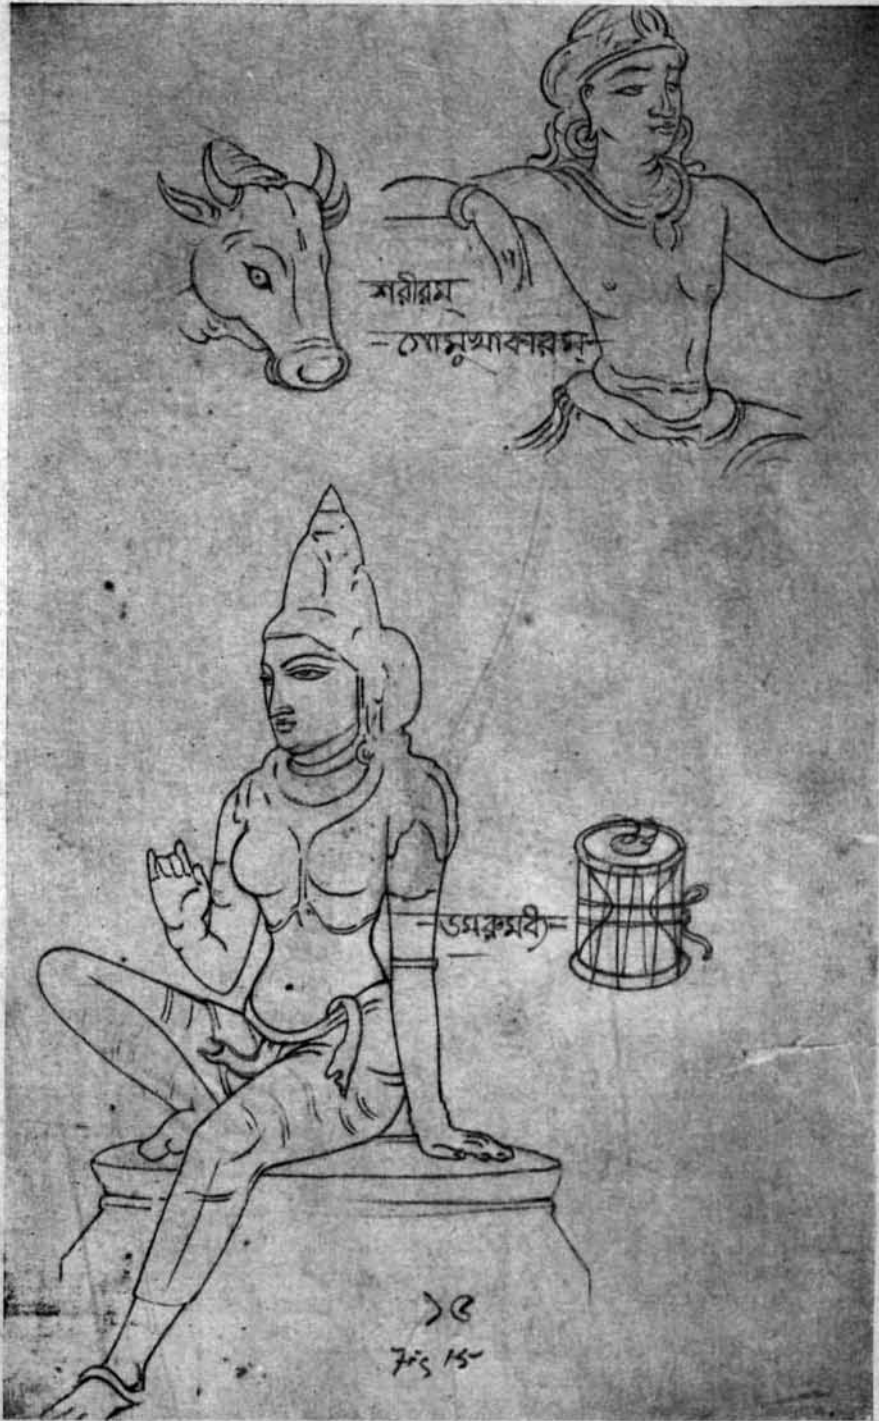 শরীরম্
-গোমুখাকারম্-
-ডমরুমধ্য-
১৫
Fig 15